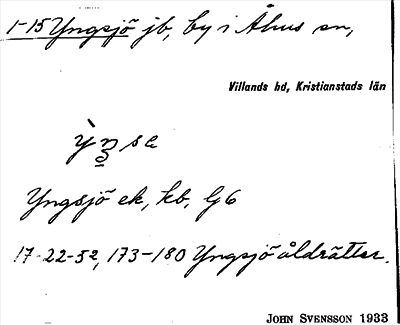 1-15 Yngsjö jb, by i Åhus sn,
Villands hd, Kristianstads län
ỳn̰sa
Yngsjö ek, kb, G6
17-22-52, 173-180 Yngsjö åldrätter.
JOHN SVENSSON 1933